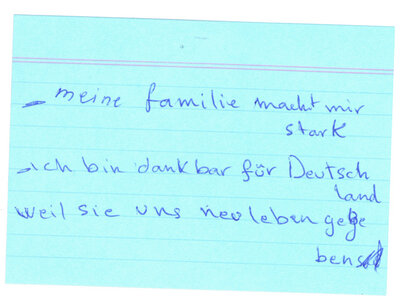 - meine familie macht mir
stark
- ich bin dankbar für Deutsch
land
weil sie uns neu leben gege
ben